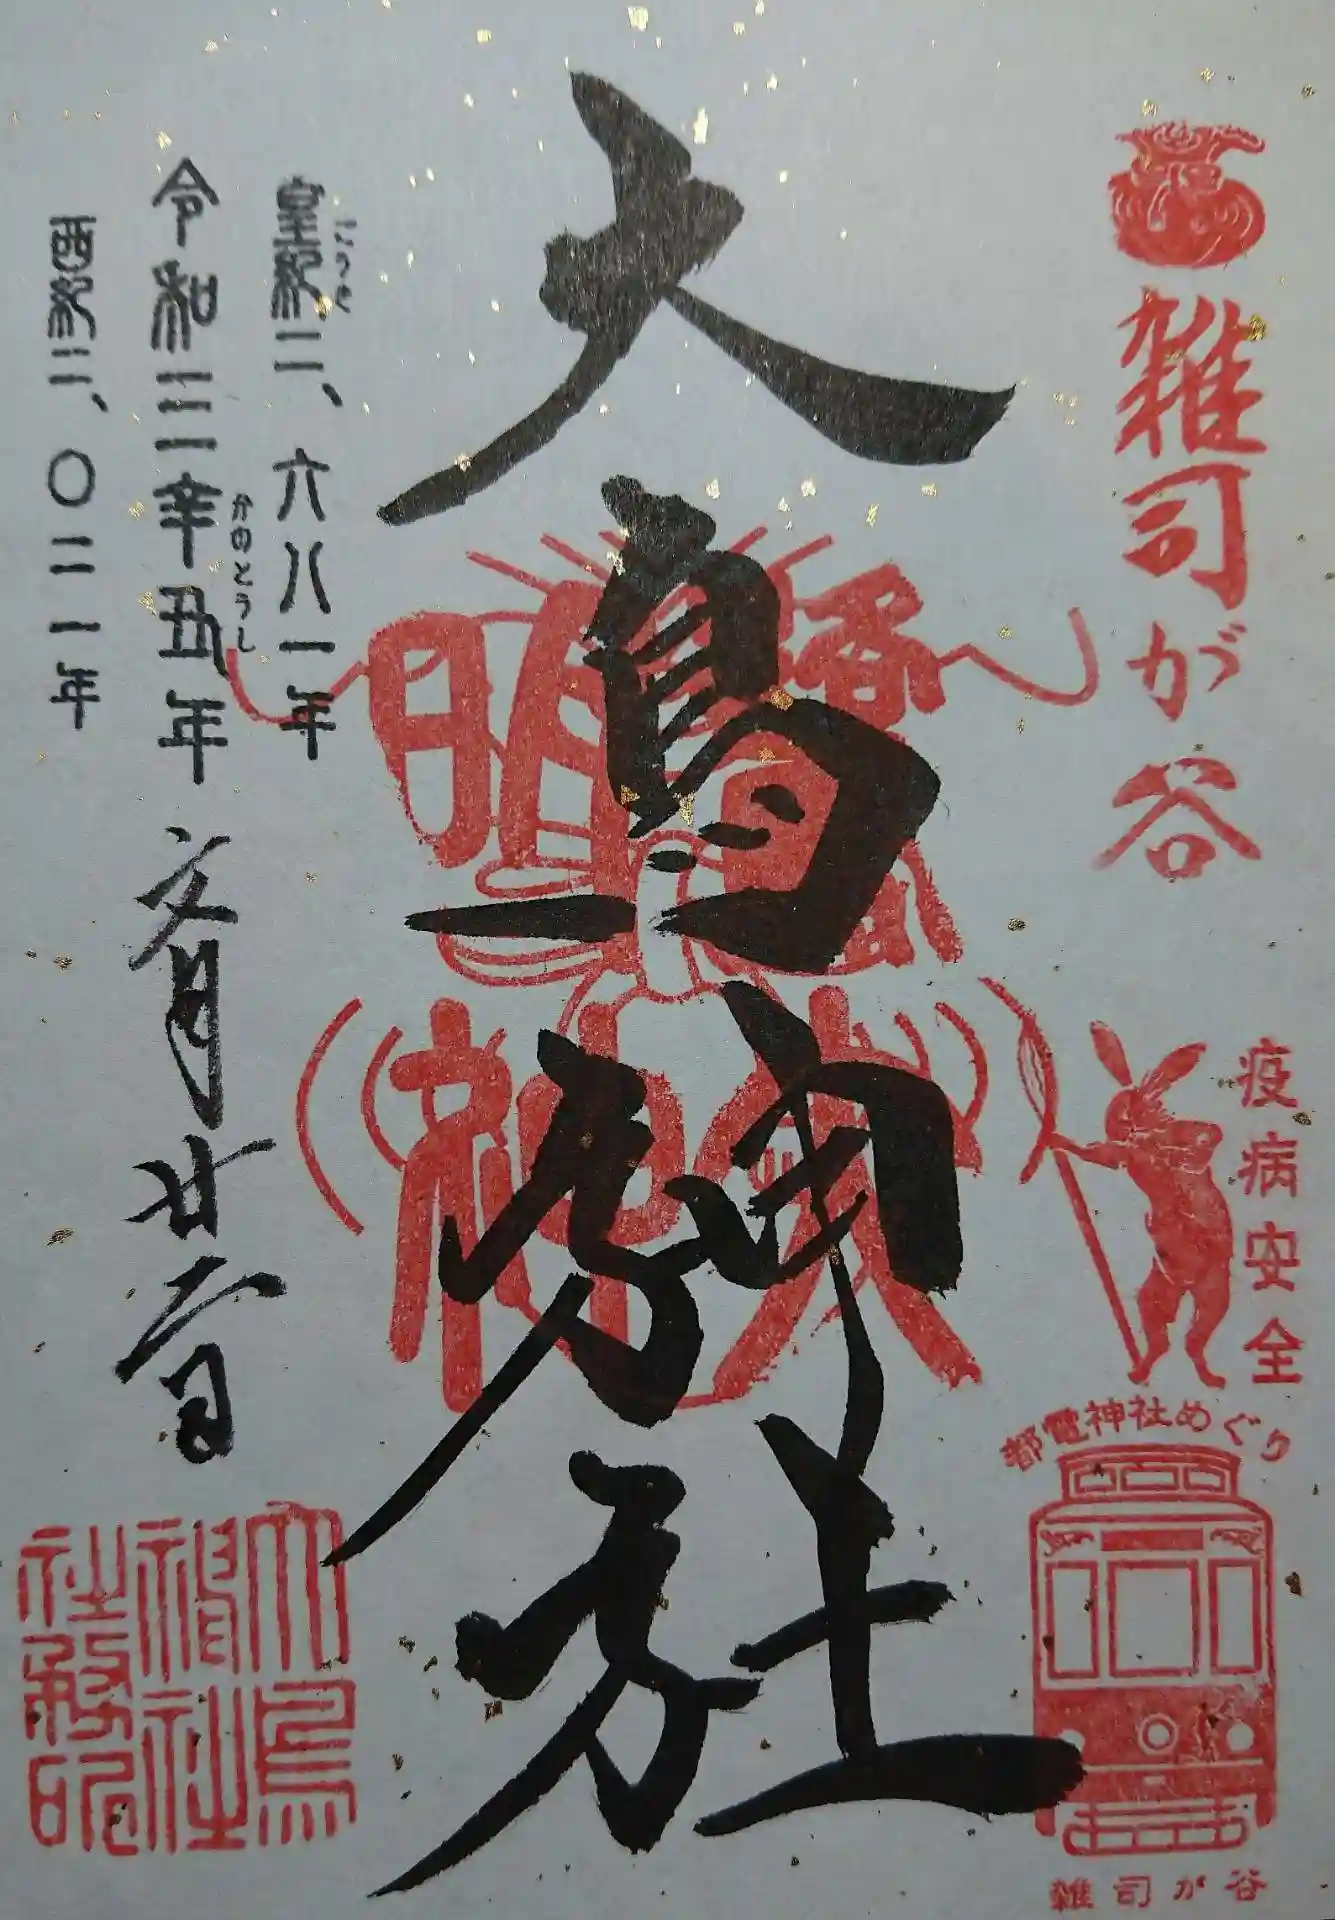 雑司が谷
疫病安全
都電神社めぐり
雑司が谷
大鳥神社
皇紀二、六八一年
こうき
令和三辛丑年
かのとうし
文月廿二日
西紀二、〇二一年
大鳥
神社
社務所印